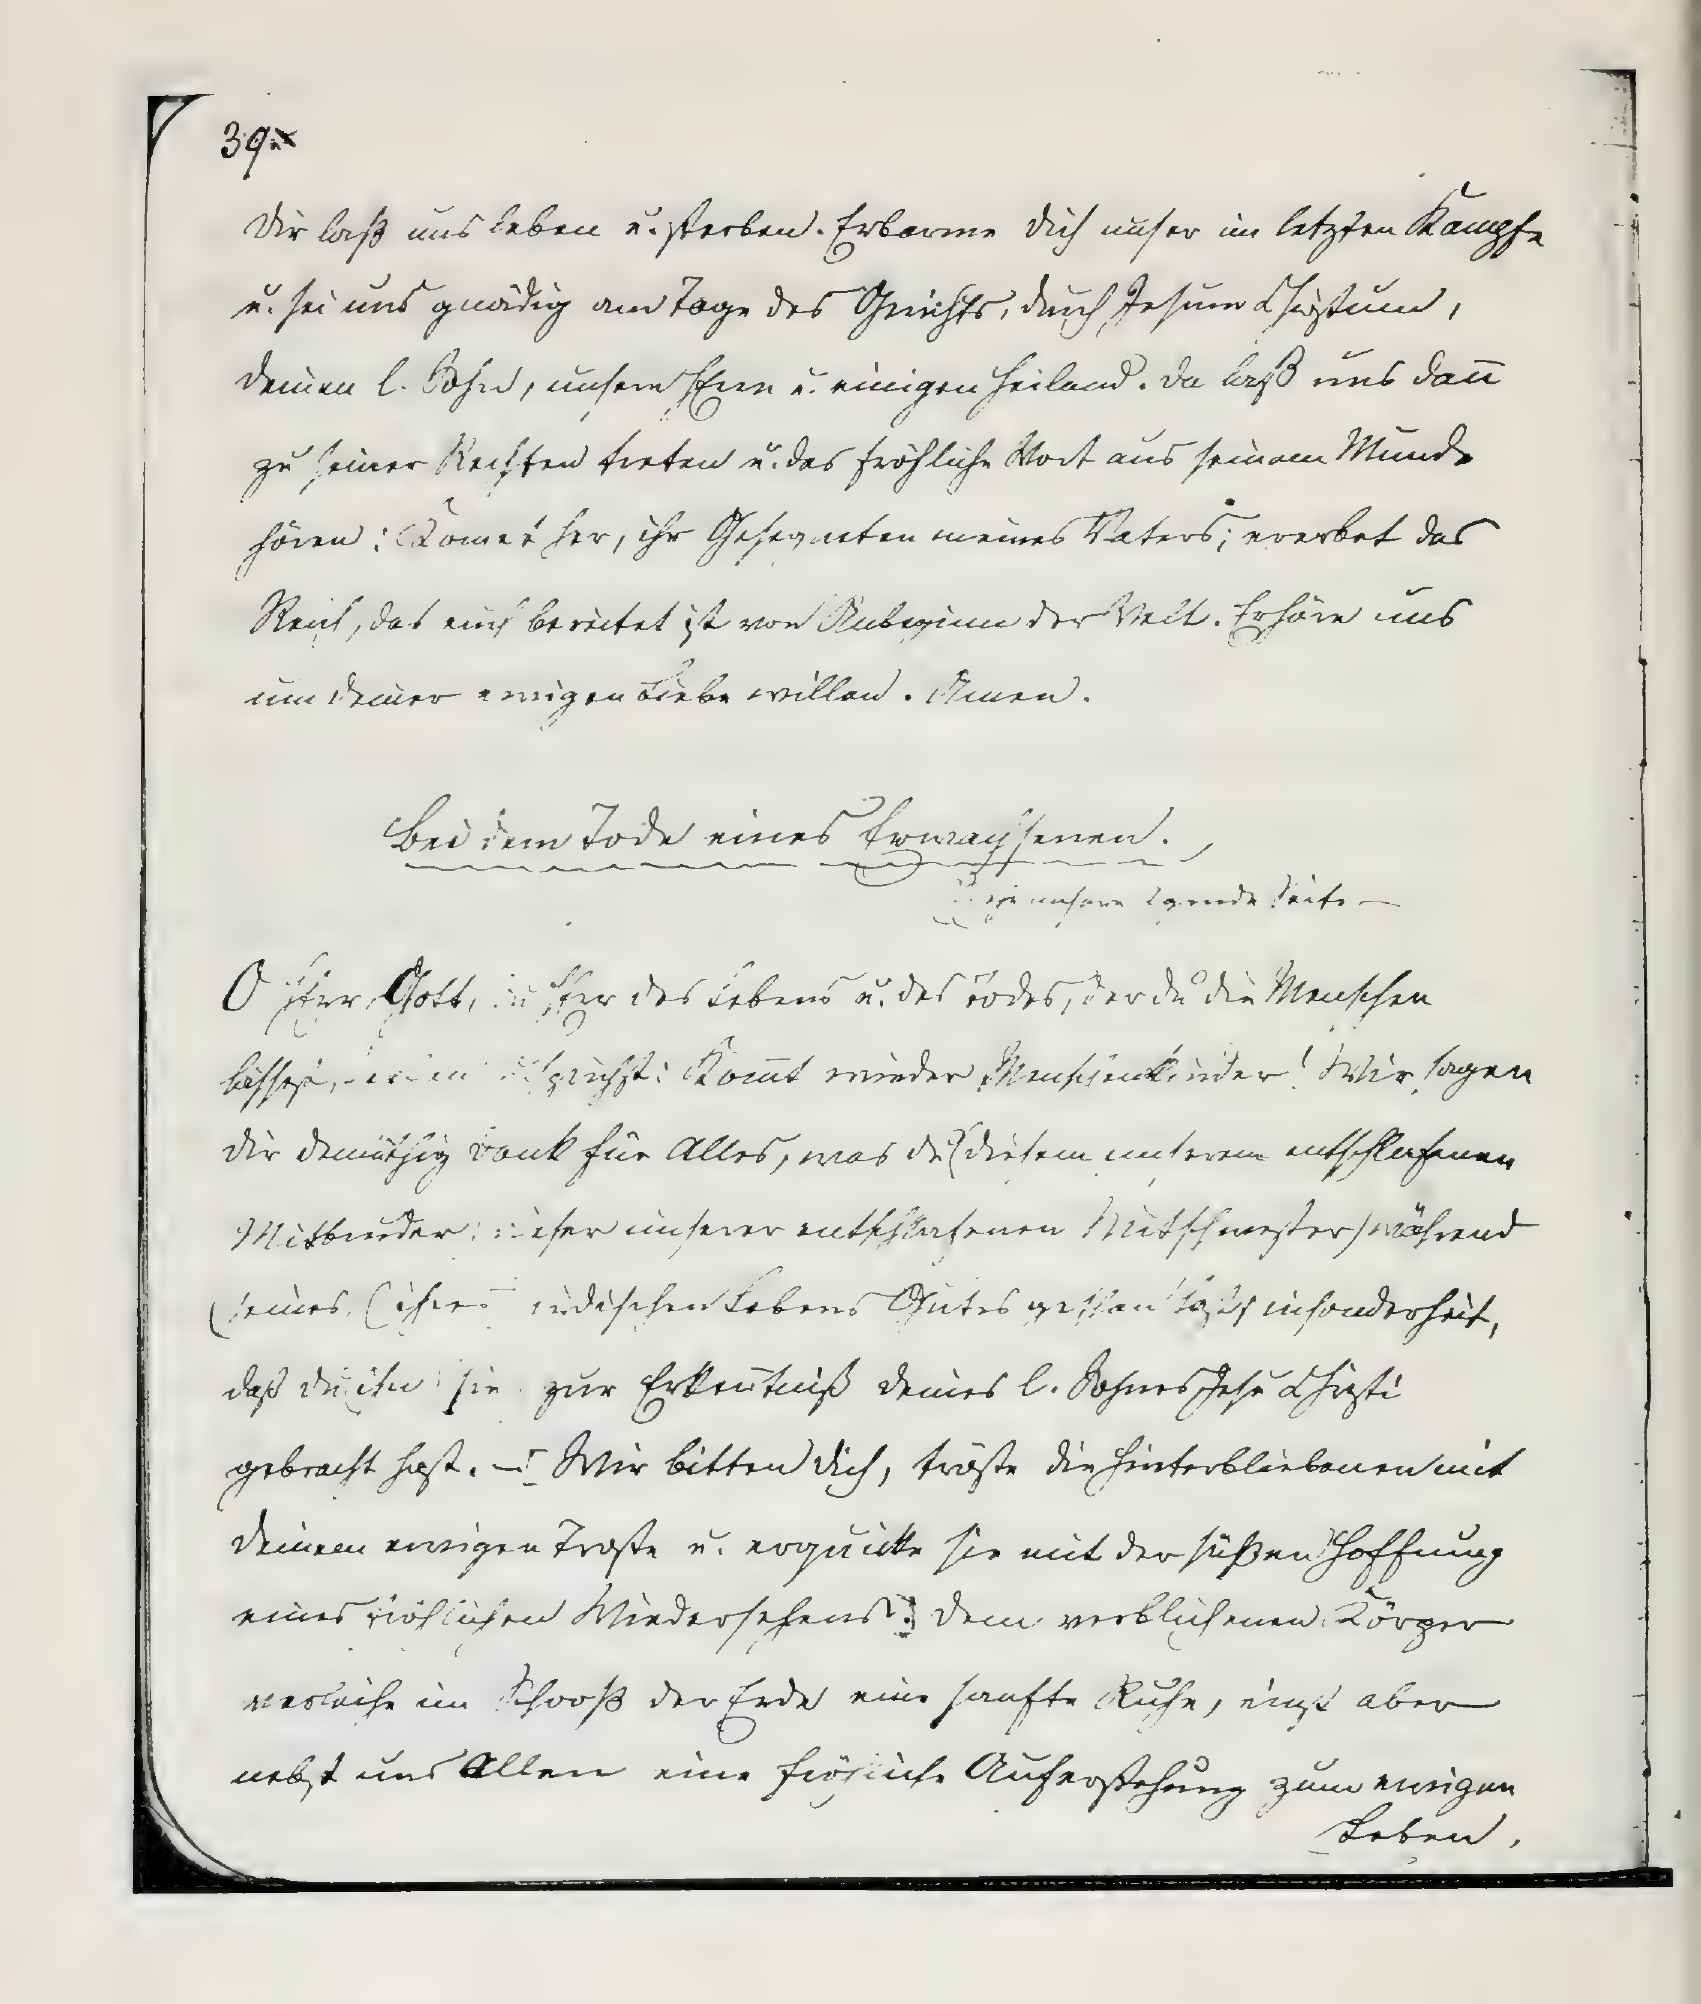 39
dir laß uns leben u. sterben. Erbarme dich unser im letzten Kampfe
u. sei uns gnädig am Tage des Gerichts, durch Jesum Christum,
deinen l. Sohn, unsern HErrn u. einigen Heiland. Da laß uns dañ
zu seiner Rechten treten u. das fröhliche Wort aus seinem Munde
hören: Komet her, ihr Gesegneten meines Vaters; ererbet das
Reich, das euch bereitet ist von Anbeginn der Welt. Erhöre uns
um deiner ewigen Liebe willen. Amen.
Bei dem Tode eines Erwachsenen.
unsere Seite —
O HErr Gott, du HErr des Lebens u. des Todes, der du die Menschen
lässest, sprichst: Kom̄t wieder Menschenkinder! Wir sagen
dir demüthig Dank für Alles, was du (diesem unserem entschlafenen
Mitbruder dieser unserer entschlafenen Mitschwester) während
(seines (ihres irdischen Lebens Gutes gethan hast insonderheit,
daß du ihn sie zur Erkeñtniß deines l. Sohnes Jesu Christi
gebracht hast. — Wir bitten dich, tröste die Hinterbliebenen mit
deinem ewigen Troste u. erquicke sie mit der süßen Hoffnung
eines fröhlichen Wiedersehens. Dem verblichenen Körper
verleihe im Schooß der Erde eine sanfte Ruhe, einst aber
nebst uns Allen eine fröhliche Auferstehung zum ewigen
Leben.